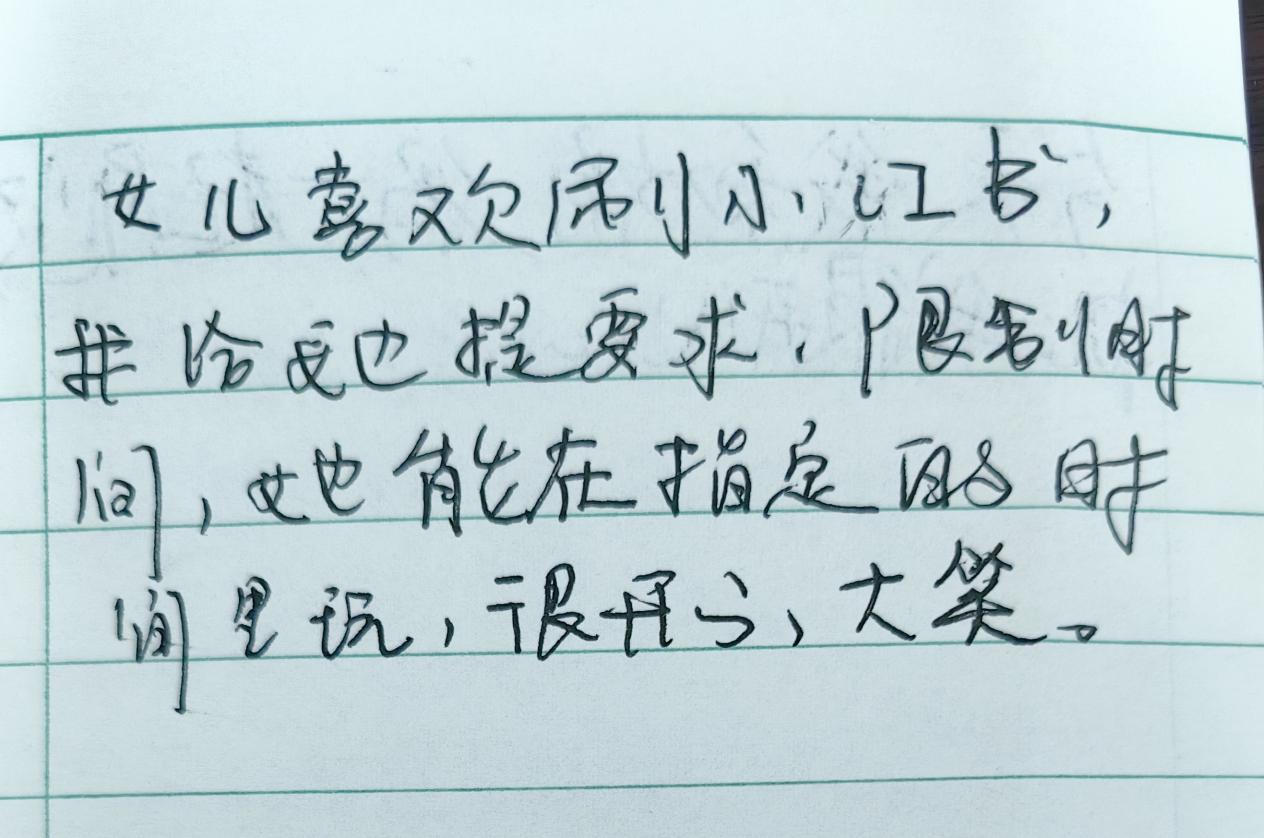 女儿喜欢刷小红书，
我给她提要求，限制时
间，她能在指定的时
间里玩，很开心，大笑。